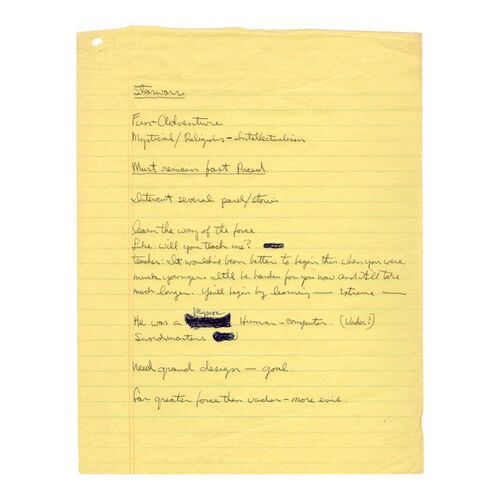 Starwars
Fun-Adventure
Mystical/Religious-Intellectualism
Must remain fast Paced.
Intercut several paral/stories
learn the way of the force.
Luke: will you teach me?
teacher: It would've been better to begin this when you were
much younger. It'll be harder for you now and It'll take
much longer. You'll begin by learning — extreme —
He was a Human-computer. (Vader?)
Swordmasters
Need grand design — goal.
far greater force then vader-more evil.